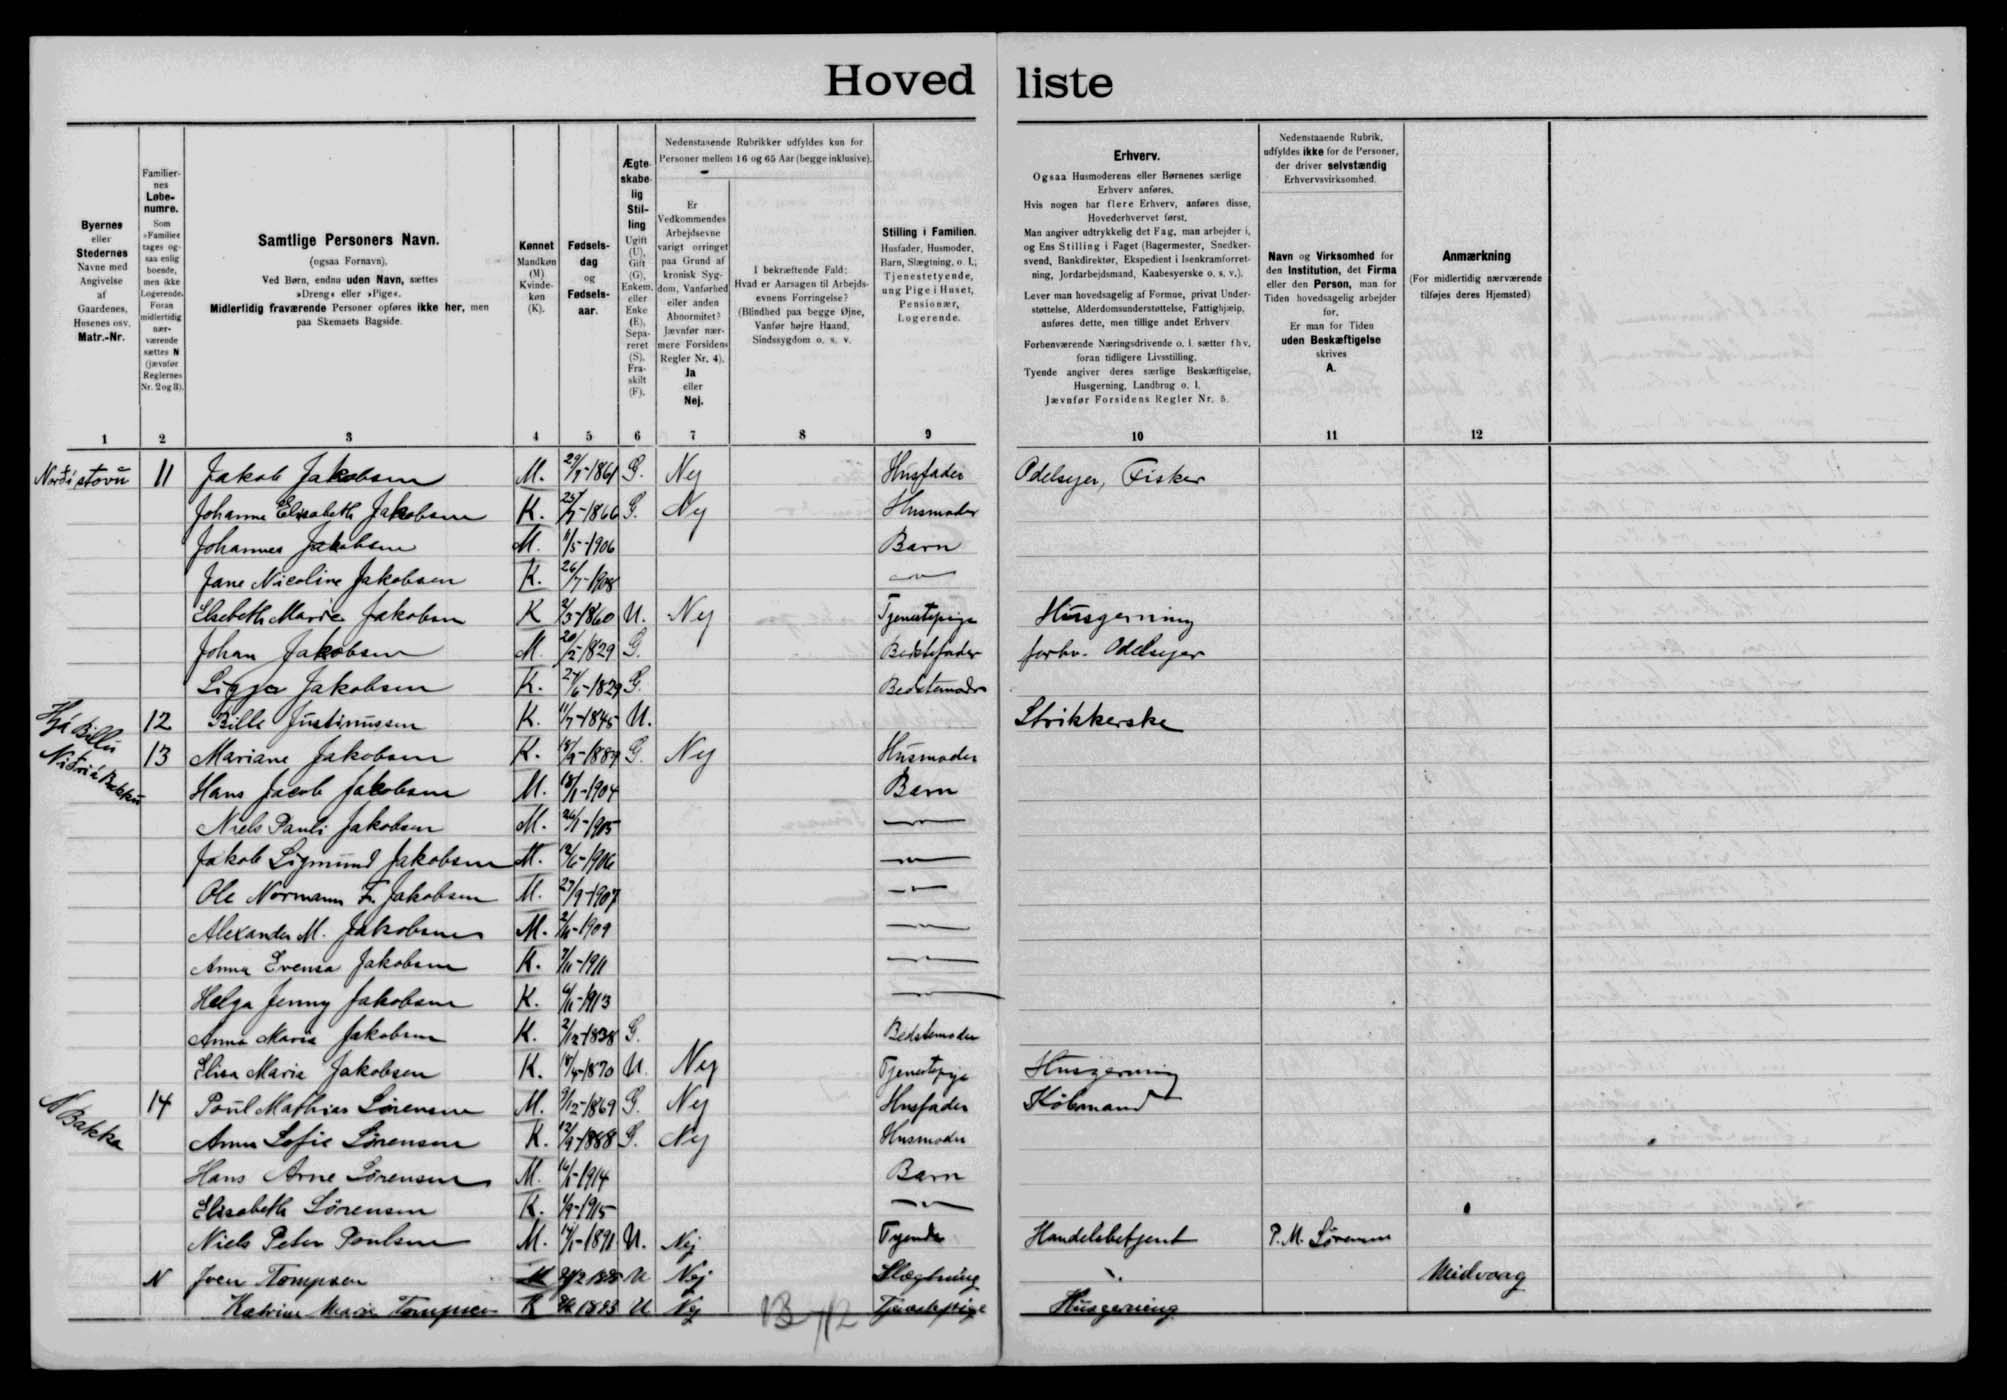 Hovedliste
Byernes eller Stedernes Navne med Angivelse af Gaardenes, Husenes osv. Matr.-Nr.
Familiernes Løbenumre. Som »Familie« tages ogsaa enlig boende, men ikke Logerende. Foran midlertidig nærværende sættes N (jævnfør Reglernes Nr. 2 og 8).
Samtlige Personers Navn. (ogsaa Fornavn). Ved Børn, endnu uden Navn, sættes »Dreng« eller »Pige«. Midlertidig fraværende Personer opføres ikke her, men paa Skemaets Bagside.
Kønnet Mandkøn (M) Kvindekøn (K).
Fødselsdag og Fødselsaar.
Ægteskabelig Stilling Ugift (U), Gift (G), Enkem. eller Enke (E), Separeret (S), Fraskilt (F).
Nedenstaaende Rubrikker udfyldes kun for Personer mellem 16 og 65 Aar (begge inklusive).
Er Vedkommendes Arbejdsevne varigt forringet paa Grund af kronisk Sygdom, Vanførhed eller anden Abnormitet? Jævnfør nærmere Forsidens Regler Nr. 4). Ja eller Nej.
I bekræftende Fald: Hvad er Aarsagen til Arbejdsevnens Forringelse? (Blindhed paa begge Øjne, Vanfør højre Haand, Sindssygdom o. s. v.
Stilling i Familien. Husfader, Husmoder, Barn, Slægtning, o. l.; Tjenestetyende, ung Pige i Huset, Pensionær, Logerende.
Erhverv.
Ogsaa Husmoderens eller Børnenes særlige Erhverv anføres.
Hvis nogen har flere Erhverv, anføres disse, Hovederhvervet først.
Man angiver udtrykkelig det Fag, man arbejder i, og Ens Stilling i Faget (Bagermester, Snedkersvend, Bankdirektør, Ekspedient i Isenkramforretning, Jordarbejdsmand, Kaabesyerske o. s. v.).
Lever man hovedsagelig af Formue, privat Understøttelse, Alderdomsunderstøttelse, Fattighjælp, anføres dette, men tillige andet Erhverv
Forhenværende Næringsdrivende o. l. sætter fhv. foran tidligere Livsstilling.
Tyende angiver deres særlige Beskæftigelse, Husgerning, Landbrug o. l.
Jævnfør Forsidens Regler Nr. 5.
Nedenstaaende Rubrik, udfyldes ikke for de Personer, der driver selvstændig Erhvervsvirksomhed.
Navn og Virksomhed for den Institution, det Firma eller den Person, man for Tiden hovedsagelig arbejder for.
Er man for Tiden uden Beskæftigelse skrives A.
Anmærkning (For midlertidig nærværende tilføjes deres Hjemsted)
1 2 3 4 5 6 7 8 9 10 11 12
Norđistovu 11 Jakob Jakobsen M. G. Nej Husfader Odelsejer, Fisker
Johanne Elisabeth Jakobsen K. 25/7-1866 G. Nej Husmoder
Johannes Jakobsen M. 11/5-1906 Barn
Jane Nicoline Jakobsen K. 26/7-1908 —"—
Elsebeth Marie Jakobsen K 2/3-1860 U. Nej Tjenestepige Husgerning
Johan Jakobsen M. 20/2-1829 G. Bedstefader forhv. Odelsejer
Sigga Jakobsen K. 27/6-1829 G. Bedstemoder
Hjá Billu 12 Bille Justinussen K. 11/7-1845 U. Strikkerske
Niđri á Bakka 13 Mariane Jakobsen K. G. Nej Husmoder
Hans Jacob Jakobsen M. 18/1-1904 Barn
Niels Pauli Jakobsen M. 26/1-1905 —"—
Jakob Sigmund Jakobsen M. 12/6-1906 —"—
Ole Normann F. Jakobsen M. 27/9-1907 —"—
Alexander M. Jakobsen M. —"—
Anna Evensa Jakobsen K. —"—
Helga Jenny Jakobsen K. —"—
Anna Maria Jakobsen K. 2/12-1838 G. Bedstemoder
Elisa Maria Jakobsen K. 18/4-1870 U. Nej Tjenestepige Husgerning
Á Bakka 14 Poul Mathias Sørensen M. 9/12-1869 G. Nej Husfader Købmand
Anna Sofie Sørensen K. 12/9-1888 G. Nej Husmoder
Hans Arne Sørensen M. Barn
Elisabeth Sørensen K. —"—
Niels Peter Poulsen M. U. Nej Tyende Handelsbetjent P. M. Sørensen
N Joen Tompsen M U Nej Slægtning " Midvaag
Katrine Marie Tompsen K U Nej Tjenestepige Husgerning